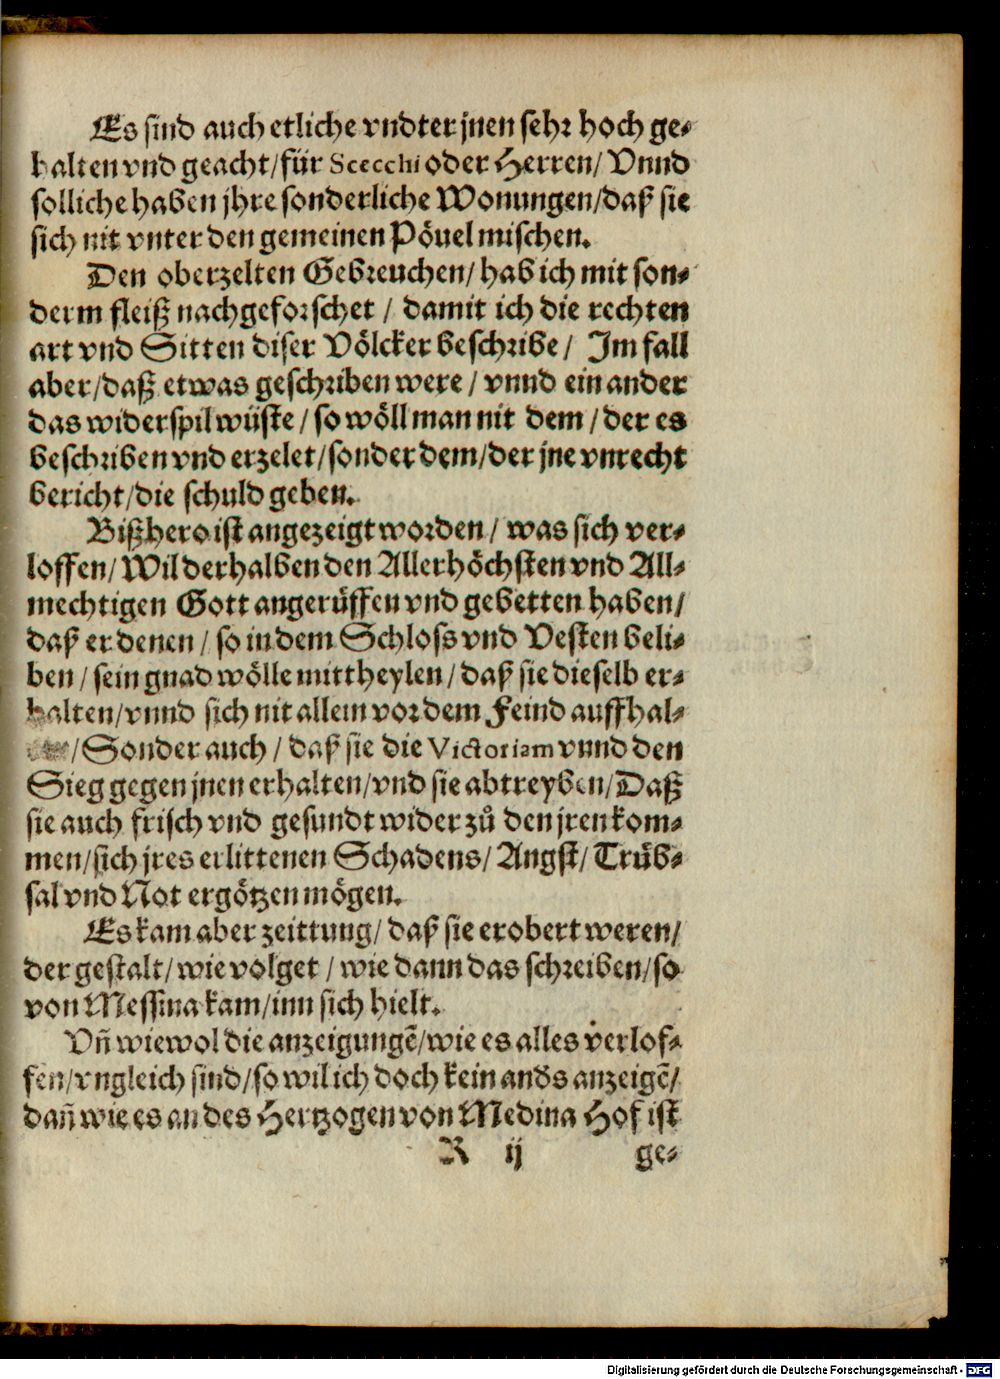 Es sind auch etliche vndter jnen sehr hoch ge-
halten vnd geacht/für Scecchi oder Herren/ Vnnd
solliche haben jhre sonderliche Wonungen/daß sie
sich nit vnter den gemeinen Pövel mischen.
Den oberzelten Gebreuchen/hab ich mit son-
derm fleiß nachgeforschet / damit ich die rechten
art vnd Sitten diser Völcker beschribe / Im fall
aber/daß etwas geschriben were / vnnd ein ander
das widerspil wüste / so wöll man nit dem / der es
beschriben vnd erzelet/sonder dem/der jne vnrecht
bericht/die schuld geben.
Bißhero ist angezeigt worden / was sich ver-
loffen/Wil derhalben den Allerhöchsten vnd All-
mechtigen Gott angerüffen vnd gebetten haben/
daß er denen / so in dem Schloss vnd Vesten beli-
ben / sein gnad wölle mittheylen / daß sie dieselb er-
halten/vnnd sich nit allein vor dem Feind auffhal-
/Sonder auch / daß sie die Victoriam vnnd den
Sieg gegen jnen erhalten/vnd sie abtreyben/Daß
sie auch frisch vnd gesundt wider zů den jren kom-
men/sich jres erlittenen Schadens/ Angst/ Trüb-
sal vnd Not ergötzen mögen.
Es kam aber zeittung/ daß sie erobert weren/
der gestalt/wie volget / wie dann das schreiben/so
von Messina kam/inn sich hielt.
Vñ wiewol die anzeigungẽ/wie es alles verlof-
fen/vngleich sind/so wil ich doch kein anders anzeigẽ/
dañ wie es an des Hertzogen von Medina Hof ist
R ij ge-
Digitalisierung gefördert durch die Deutsche Forschungsgemeinschaft - DFG